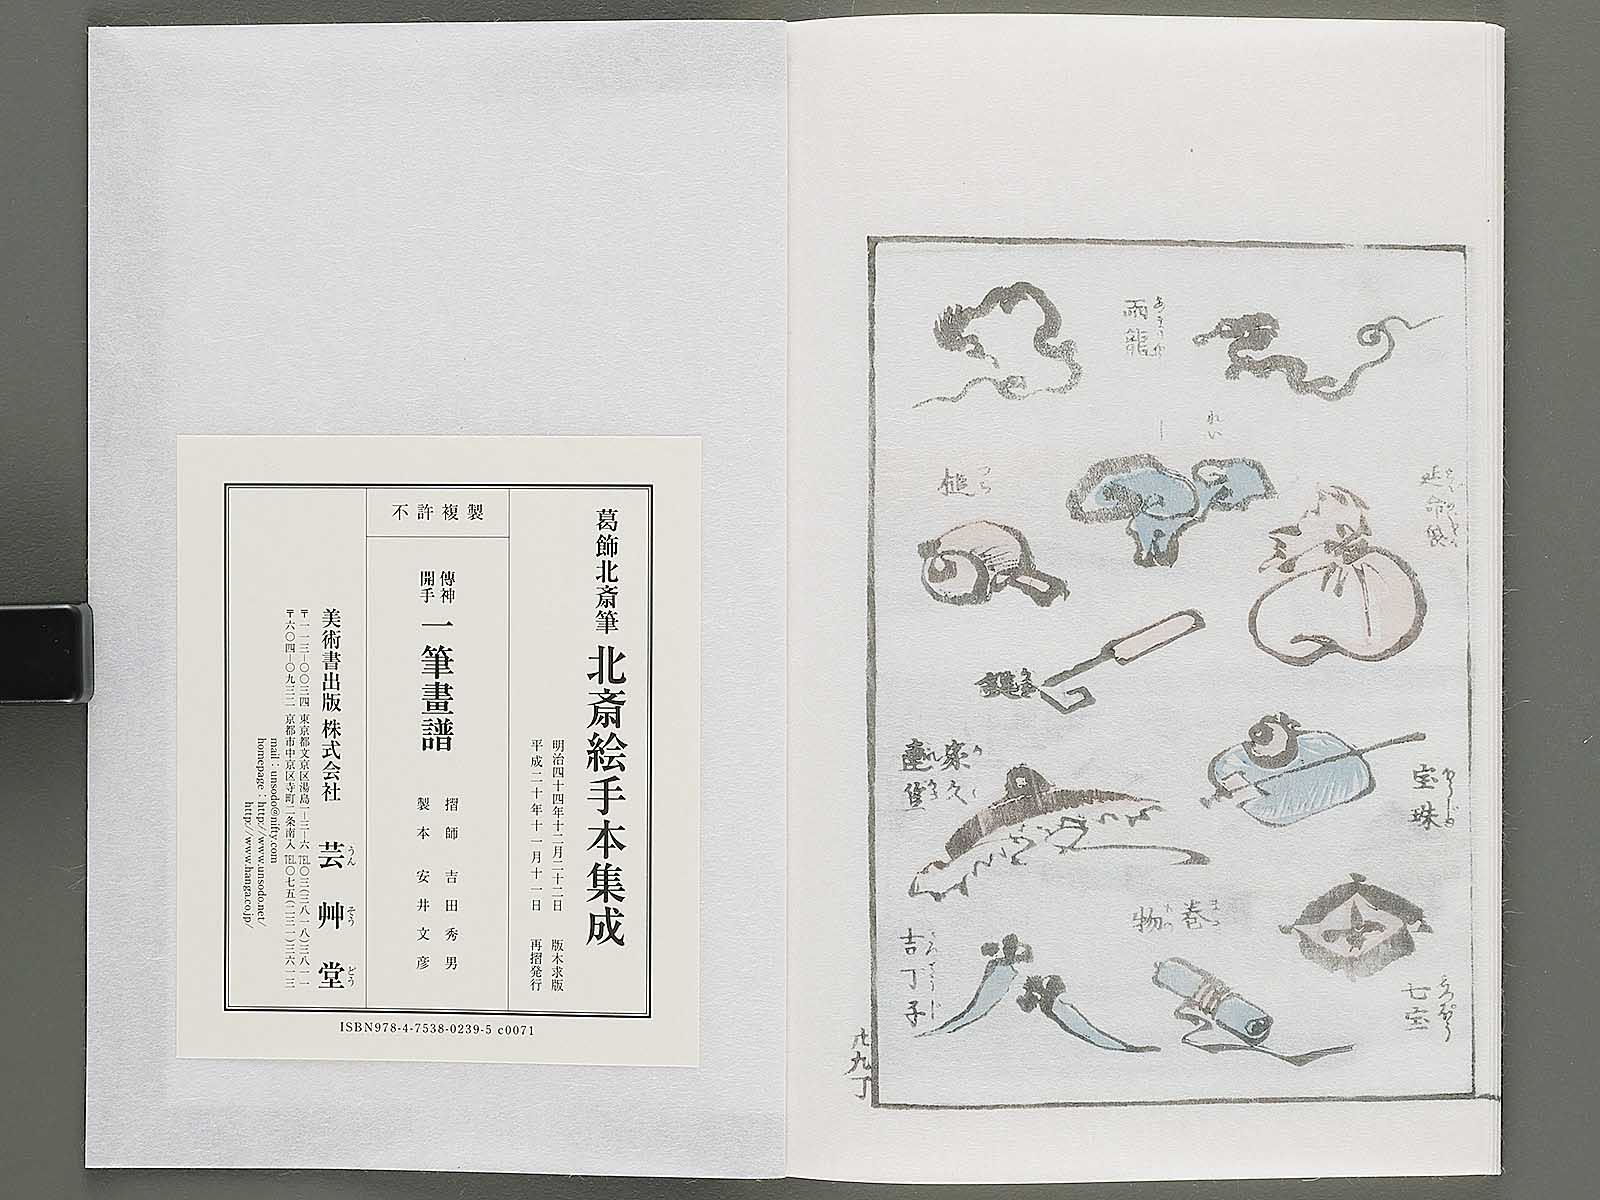 雨龍
あまりやう
れい
し
延命袋
槌
つち
鍵
宝珠
七宝
しつぽう
巻物
まき
もの
吉丁子
廿九丁
葛飾北斎筆 北斎絵手本集成
明治四十四年十二月二十二日 版木求版
平成二十年十一月十一日 再摺発行
不許複製
傳神
開手
一筆畫譜
摺師 吉田秀男
製本 安井文彦
美術書出版 株式会社 芸艸堂
うん そう どう
〒一一三-〇〇三四 東京都文京区湯島一-三-六 TEL〇三(三八一八)三八一一
〒六〇四-〇九三二 京都市中京区寺町二条南入 TEL〇七五(二三一)三六一三
mail : unsodo@nifty.com
homepage : http://www.unsodo.net/
http://www.hanga.co.jp/
ISBN978-4-7538-0239-5 c0071